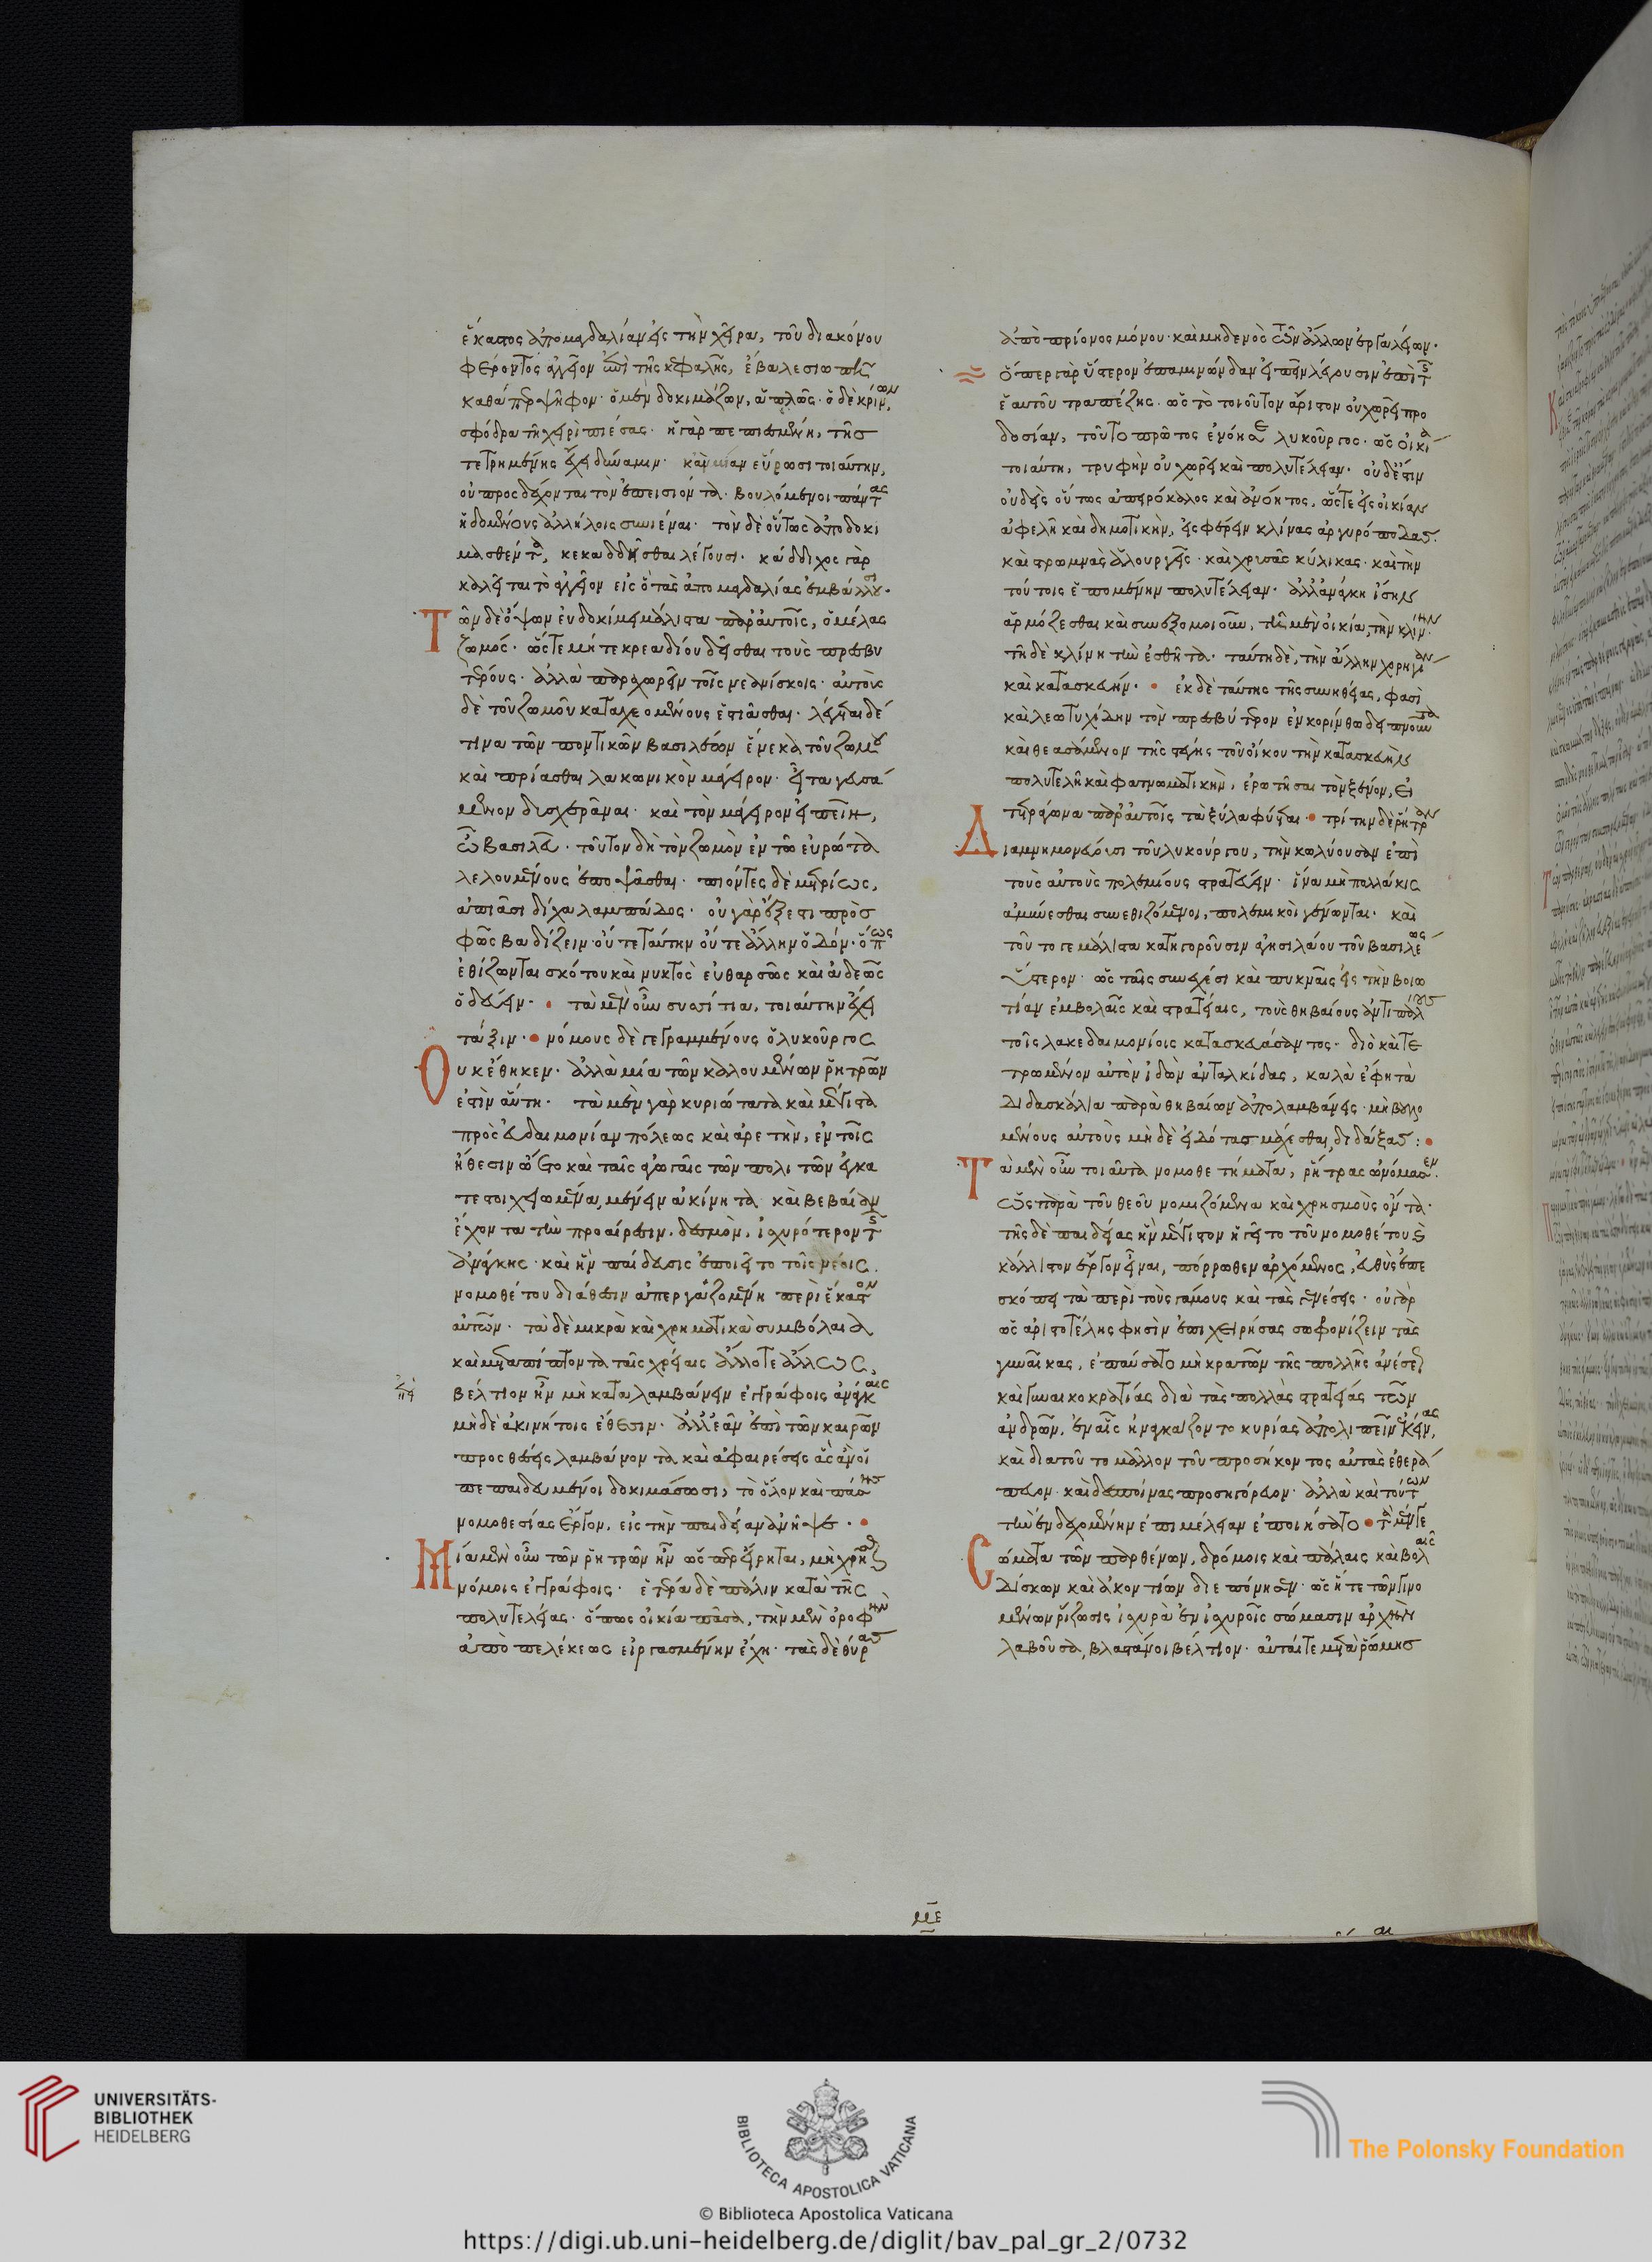 ἕκαστος ἀπομαγδαλίαν εἰς τὴν χεῖρα, τοῦ διακόνου
φέροντος ἀγγεῖον ἐπὶ τῆς κεφαλῆς, ἔβαλε σιωπῆ
καθάπερ ψῆφον· ὁ μὲν δοκιμάζων, ἁπλῶς· ὁ δὲ κρίνων,
σφόδρα τῆ χειρὶ πιέσας· ἡ γὰρ πεπιεσμένη, τῆς
τετρημένης ἔχει δύναμιν· κἂν μίαν εὕρωσι τοιαύτην,
οὐ προσδέχονται τὸν ἐπεισιόντα· βουλόμενοι πάντας
ἡδομένους ἀλλήλοις συνιέναι· τὸν δὲ οὕτως ἀποδοκι
μασθέντα, κεκαδδῆσθαι λέγουσι· κάδδιχος γὰρ
καλεῖται τὸ ἀγγεῖον εἰς ὃ τὰς ἀπομαγδαλίας ἐμβάλλουσι·
Τῶν δὲ ὄψων εὐδοκίμει μάλιστα παρ᾽ αὐτοῖς, ὁ μέλας
ζωμός· ὥστε μήτε κρεαδίου δεῖσθαι τοὺς πρεσβυ
τέρους· ἀλλὰ παραχωρεῖν τοῖς νεανίσκοις· αὐτοὺς
δὲ τοῦ ζωμοῦ καταχεομένους ἑστιᾶσθαι· λέγεται δέ
τινα τῶν ποντικῶν βασιλέων ἕνεκα τοῦ ζωμοῦ
καὶ πρίασθαι λακωνικὸν μάγειρον· εἶτα γευσά
μενον δυσχερᾶναι· καὶ τὸν μάγειρον εἰπεῖν,
ὦ βασιλεῦ· τοῦτον δεῖ τὸν ζωμὸν ἐν τῶ εὐρώτα
λελουμένους ἐποψᾶσθαι· πιόντες δὲ μετρίως,
ἀπίασι δίχα λαμπάδος· οὐ γὰρ ἔξεστι πρὸς
φῶς βαδίζειν· οὔτε ταύτην οὔτε ἄλλην ὁδόν· ὅπως
ἐθίζωνται σκότου καὶ νυκτὸς εὐθαρσῶς καὶ ἀδεῶς
ὁδεύειν· τὰ μὲν οὖν συσσίτια, τοιαύτην ἔχει
τάξιν· νόμους δὲ γεγραμμένους ὁ λυκοῦργος
Οὐκ ἔθηκεν· ἀλλὰ μία τῶν καλουμένων ῥητρῶν
ἐστὶν αὕτη· τὰ μὲν γὰρ κυριώτατα καὶ μέγιστα
πρὸς εὐδαιμονίαν πόλεως καὶ ἀρετὴν, ἐν τοῖς
ἤθεσιν ὤετο καὶ ταῖς ἀγωγαῖς τῶν πολιτῶν ἐγκα
τεστοιχειωμένα, μένειν ἀκίνητα καὶ βέβαια
ἔχοντα τὴν προαίρεσιν, δεσμὸν, ἰσχυρότερον τῆς
ἀνάγκης· καὶ ἣν παίδευσις ἐποιεῖτο τοῖς νέοις·
νομοθέτου διάθεσιν ἀπεργαζομένη περὶ ἕκαστον
αὐτῶν· τὰ δὲ μικρὰ καὶ χρηματικὰ συμβόλαια
καὶ μεταπίπτοντα ταῖς χρείαις ἄλλοτε ἄλλως,
βέλτιον ἦν μὴ καταλαμβάνειν ἐγγράφοις ἀνάγκαις
μηδὲ ἀκινήτοις ἔθεσιν· ἀλλ᾽ ἐᾶν ἐπὶ τῶν καιρῶν
προσθέσεις λαμβάνοντα καὶ ἀφαιρέσεις ἃς ἂν οἱ
πεπαιδευμένοι δοκιμάσωσι, τὸ ὅλον καὶ πᾶν τῆς
νομοθεσίας ἔργον, εἰς τὴν παιδείαν ἀνῆψε·
Μία μὲν οὖν τῶν ῥητρῶν ἦν ὥσπερ εἴρηται, μὴ χρῆσθαι
νόμοις ἐγγράφοις· ἑτέρα δὲ πάλιν κατὰ τῆς
πολυτελείας· ὅπως οἰκία πᾶσα, τὴν μὲν ὀροφὴν
ἀπὸ πελέκεως εἰργασμένην ἔχη· τὰς δὲ θύρας
ἀπὸ πρίονος μόνου· καὶ μηδενὸς τῶν ἄλλων ἐργαλείων·
ὅπερ γὰρ ὕστερον ἐπαμινώνδαν εἰπεῖν λέγουσιν ἐπὶ τῆς
ἑαυτοῦ τραπέζης· ὡς τὸ τοιοῦτον ἄριστον οὐ χωρεῖ προ
δοσίαν, τοῦτο πρῶτος ἐνόησε λυκοῦργος· ὡς οἰκία
τοιαύτη, τρυφὴν οὐ χωρεῖ καὶ πολυτέλειαν· οὐδέ ἐστιν
οὐδεὶς οὕτως ἀπειρόκαλος καὶ ἀνόητος, ὥστε εἰς οἰκίαν
ἀφελῆ καὶ δημοτικὴν, εἰσφέρειν κλίνας ἀργυρόποδας·
καὶ στρωμνὰς ἁλουργεῖς· καὶ χρυσᾶς κύλικας· καὶ τὴν
τούτοις ἑπομένην πολυτέλειαν· ἀλλ᾽ ἀνάγκη ἴσην
ἁρμόζεσθαι καὶ συνεξομοιοῦν, τῆ μὲν οἰκία, τὴν κλίνην·
τῆ δὲ κλίνη τὴν ἐσθῆτα· ταύτη δὲ, τὴν ἄλλην χορηγίαν
καὶ κατασκευήν· ἐκ δὲ ταύτης τῆς συνηθείας, φασὶ
καὶ λεωτυχίδην τὸν πρεσβύτερον ἐν κορίνθω δειπνοῦντα
καὶ θεασάμενον τῆς στέγης τοῦ οἴκου τὴν κατασκευὴν
πολυτελῆ καὶ φατνωματικὴν, ἐρωτῆσαι τὸν ξένον, εἰ
τετράγωνα παρ᾽ αὐτοῖς τὰ ξύλα φύεται· τρίτην δὲ ῥήτραν
Διαμνημονεύουσι τοῦ λυκούργου, τὴν κωλύουσαν ἐπὶ
τοὺς αὐτοὺς πολεμίους στρατεύειν· ἵνα μὴ πολλάκις
ἀμύνεσθαι συνεθιζόμενοι, πολεμικοὶ γένωνται· καὶ
τοῦτό γε μάλιστα κατηγοροῦσιν ἀγησιλάου τοῦ βασιλέως
ὕστερον· ὡς ταῖς συνεχέσι καὶ πυκναῖς εἰς τὴν βοιω
τίαν ἐμβολαῖς καὶ στρατείαις, τοὺς θηβαίους ἀντιπάλους
τοῖς λακεδαιμονίοις κατασκευάσαντος· διὸ καὶ τε
τρωμένον αὐτὸν ἰδὼν ἀνταλκίδας, καλὰ ἔφη τὰ
διδασκάλια παρὰ θηβαίων ἀπολαμβάνεις· μὴ βουλο
μένους αὐτοὺς μηδὲ εἰδότας μάχεσθαι, διδάξας:
Τὰ μὲν οὖν τοιαῦτα νομοθετήματα, ῥήτρας ὠνόμασεν·
ὡς παρὰ τοῦ θεοῦ νομιζόμενα καὶ χρησμοὺς ὄντα·
τῆς δὲ παιδείας ἣν μέγιστον ἡγεῖτο τοῦ νομοθέτου καὶ
κάλλιστον ἔργον εἶναι, πόρρωθεν ἀρχόμενος, εὐθὺς ἐπε
σκόπει τὰ περὶ τοὺς γάμους καὶ τὰς γενέσεις· οὐ γὰρ
ὡς ἀριστοτέλης φησὶν ἐπιχειρήσας σωφρονίζειν τὰς
γυναῖκας, ἐπαύσατο μὴ κρατῶν τῆς πολλῆς ἀνέσεως
καὶ γυναικοκρατίας διὰ τὰς πολλὰς στρατείας τῶν
ἀνδρῶν, ἐν αἷς ἠναγκάζοντο κυρίας ἀπολιπεῖν ἐκείνας,
καὶ διὰ τοῦτο μᾶλλον τοῦ προσήκοντος αὐτὰς ἐθερά
πευον· καὶ δεσποίνας προσηγόρευον· ἀλλὰ καὶ τούτων
τὴν ἐνδεχομένην ἐπιμέλειαν ἐποιήσατο· τὰ μέν γε
Σώματα τῶν παρθένων, δρόμοις καὶ πάλαις καὶ βολαῖς
δίσκων καὶ ἀκοντίων διεπόνησεν· ὡς ἥ τε τῶν γινο
μένων ῥίζωσις ἰσχυρὰ ἐν ἰσχυροῖς σώμασιν ἀρχὴν
λαβοῦσα, βλαστάνοι βέλτιον· αὐταί τε μετὰ ῥώμης
με
UNIVERSITÄTS-
BIBLIOTHEK
HEIDELBERG
BIBLIOTECA APOSTOLICA VATICANA
The Polonsky Foundation
© Biblioteca Apostolica Vaticana
https://digi.ub.uni-heidelberg.de/diglit/bav_pal_gr_2/0732